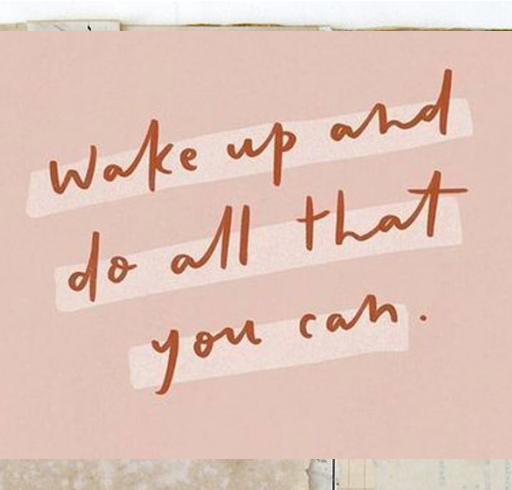 Wake up and
do all that
you can.